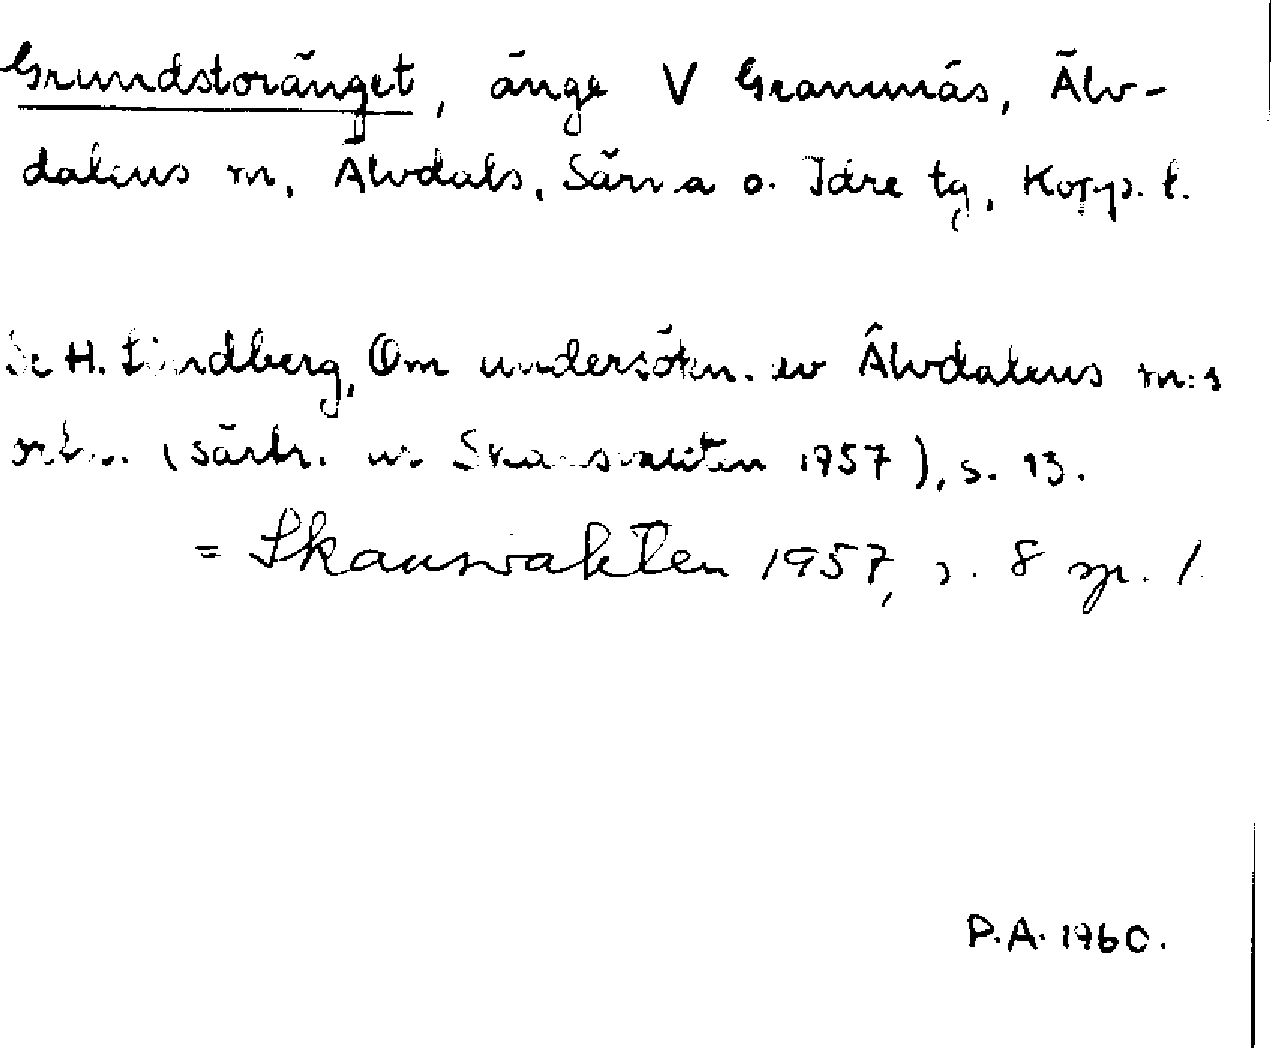 Grundstoränget, änge V Granunäs, Älv-
dalens m, Älvdals, Särna o. Idre tg, Kopp. l.
Se H. Lindberg, Om undersökn. av Älvdalens m:s
ortn. (särtr. ur Skansvakten 1957), s. 13.
= Skansvakten 1957, s. 8 sp. 1.
P.A. 1960.